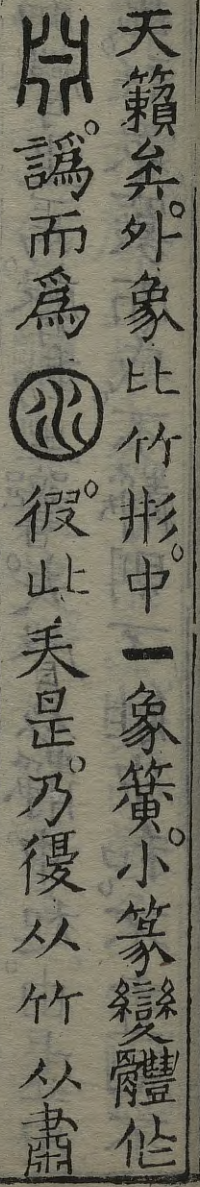 天籟矣。外象比竹形。中一象簧。小篆變體作
譌而爲。彼此羙是。乃復从竹从肅